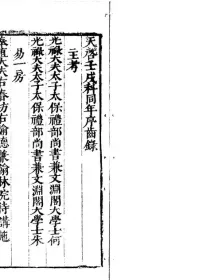 天啓壬戌科同年序齒錄
主考
光祿大夫太子太保禮部尚書兼文淵閣大學士何
光祿大夫太子太保禮部尚書兼文淵閣大學士朱
易一房
奉直大夫右春坊右諭德兼翰林院侍講施